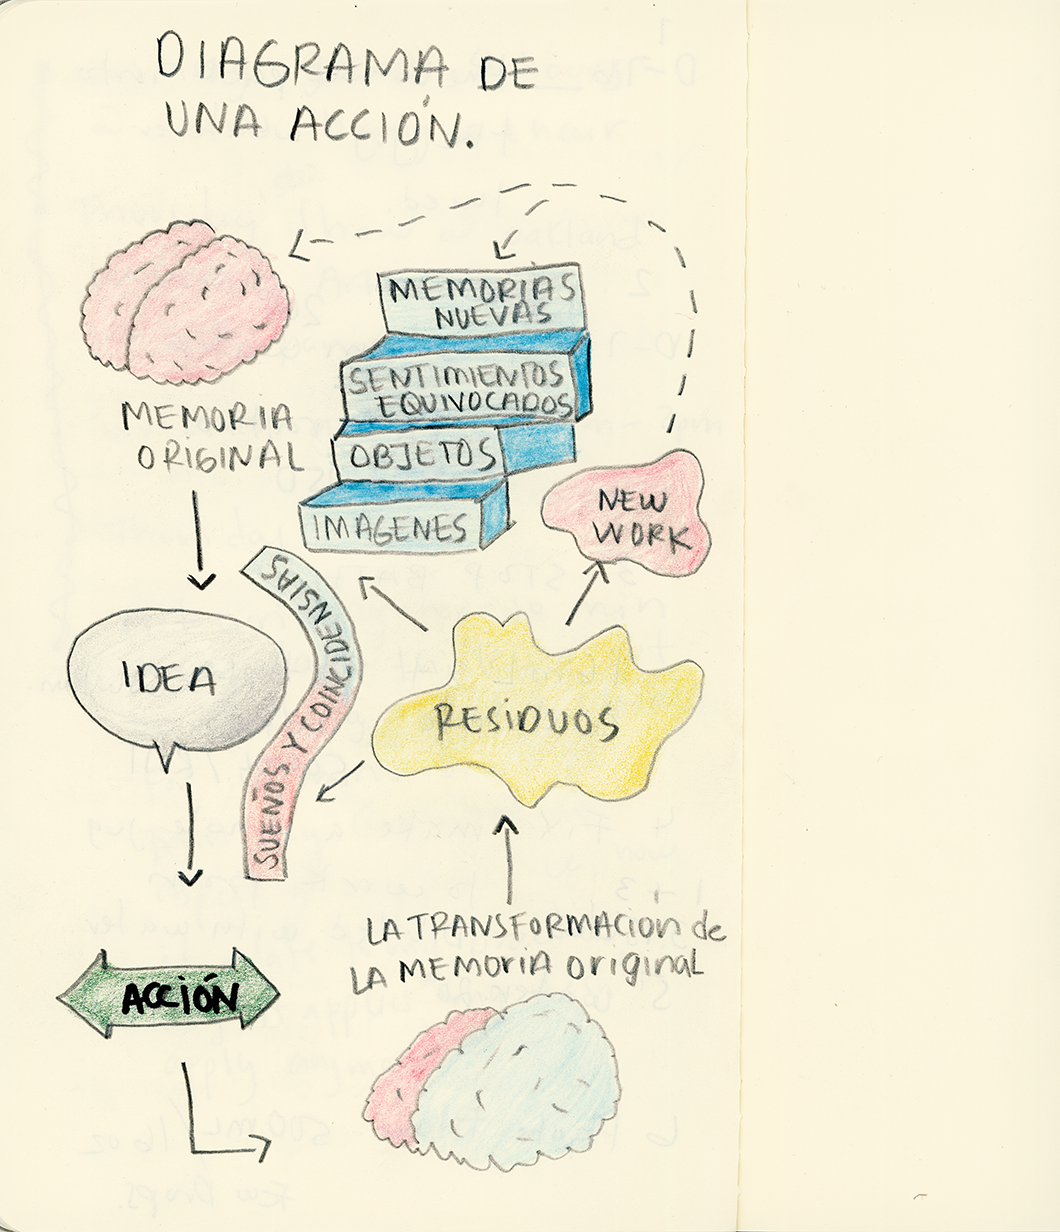 DIAGRAMA DE
UNA ACCIÓN.
MEMORIA
ORIGINAL
MEMORIAS
NUEVAS
SENTIMIENTOS
EQUIVOCADOS
OBJETOS
IMAGENES
NEW
WORK
IDEA
SUEÑOS Y COINCIDENSIAS
RESiDUOS
ACCIÓN
LA TRANSFORMACIón de
LA MEMORiA original